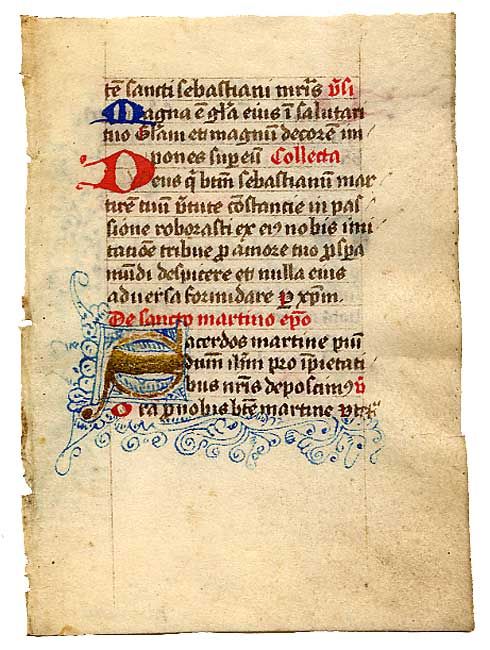 tē sancti sebastiani mr̄is v̄si
Magna ē gl̄a eius ī salutari
tuo gl̄am et magnū decorē im
pones sup eū Collecta
Deus q̄ btm̄ sebastianum mar
tirē tuū v̄tute cōstancie in pas
sione roborasti ex eiꝰ nobis imi
tatiōe tribue ꝓ amore tuo ꝓsꝑa
mūdi despicere et nulla eius
adversa formidare ꝑ xp̄m.
De sancto martino ep̄o
Sacerdos martine piū
ꝓ impietati
bus nr̄is deposcimꝰ v̄
Ora ꝓ nobis btē martine